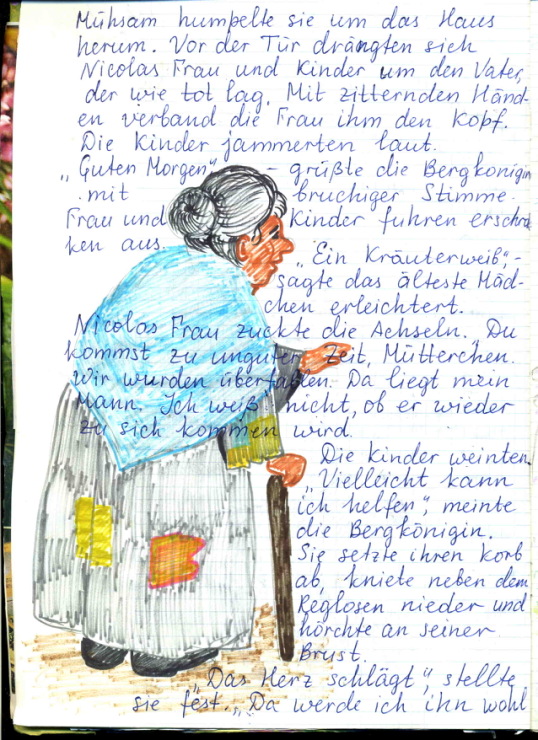 Mühsam humpelte sie um das Haus
herum. Vor der Tür drängten sich
Nicolas Frau und Kinder um den Vater,
der wie tot lag. Mit zitternden Händ-
en verband die Frau ihm den Kopf.
Die Kinder jammerten laut.
„Guten Morgen" - grüßte die Bergkonigin
mit bruchiger Stimme.
Frau und Kinder fuhren erschro
ken aus.
„Ein Kräuterweiß" -
sagte das älteste Mäd-
chen erleichtert.
Nicolas Frau zuckte die Achseln. „Du
kommst zu unguter Zeit, Mütterchen.
Wir wurden überfallen. Da liegt mein
Mann. Ich weiß nicht, ob er wieder
zu sich kommen wird.
Die Kinder weinten.
„Vielleicht kann
ich helfen", meinte
die Bergkönigin.
Sie setzte ihren Korb
ab, kniete neben dem
Reglosen nieder und
hörchte an seiner
Brust.
„Das Herz schlägt", stellte
sie fest. „Da werde ich ihn wohl